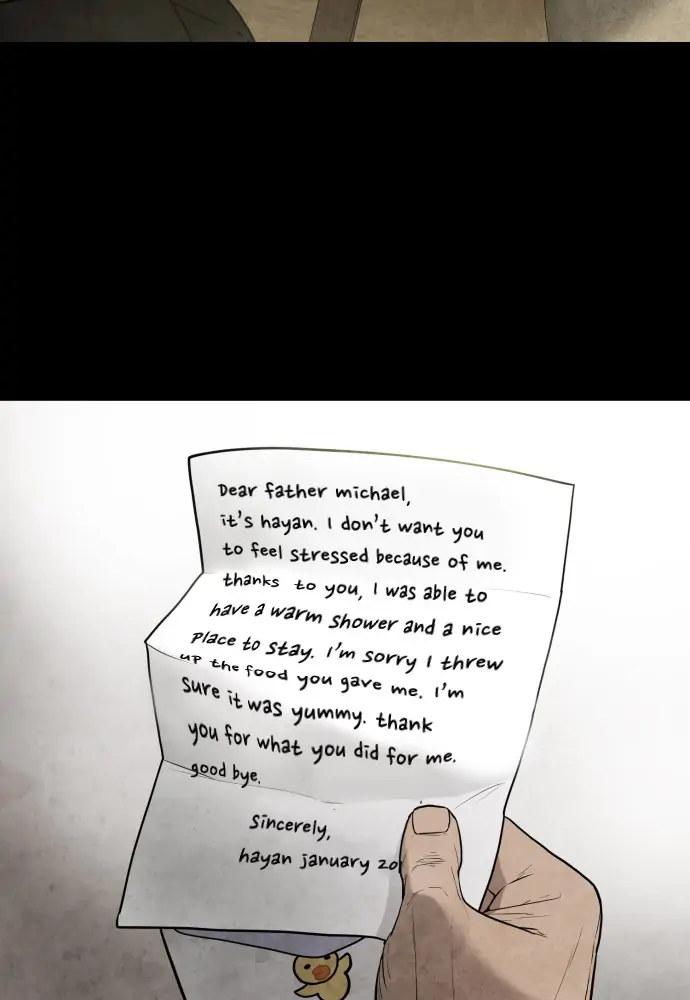 Dear father michael,
it's hayan. I don't want you
to feel stressed because of me.
thanks to you, I was able to
have a warm shower and a nice
place to stay. I'm sorry I threw
up the food you gave me. I'm
sure it was yummy. thank
you for what you did for me.
good bye.
Sincerely,
hayan january 20